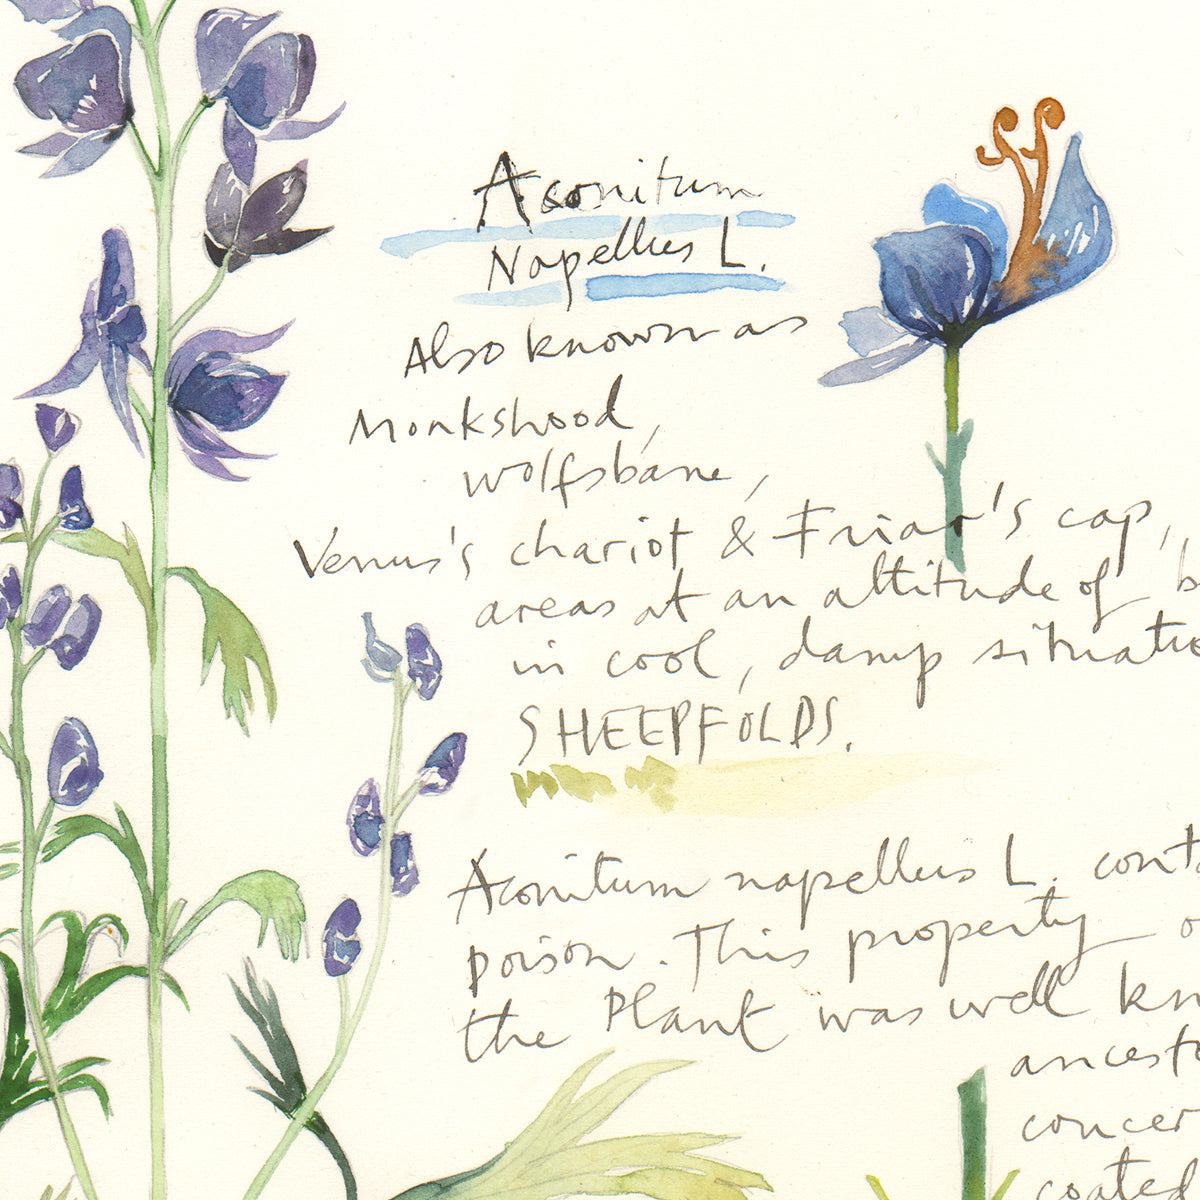 Aconitum
Napellus L.
Also known as
Monkshood,
wolfsbane,
Venus's chariot & Friar's cap,
areas at an altitude of b
in cool, damp situatio
SHEEPFOLDS.
Aconitum napellus L. cont
poison. This property o
the Plant was well kn
ancesto
concer
coated